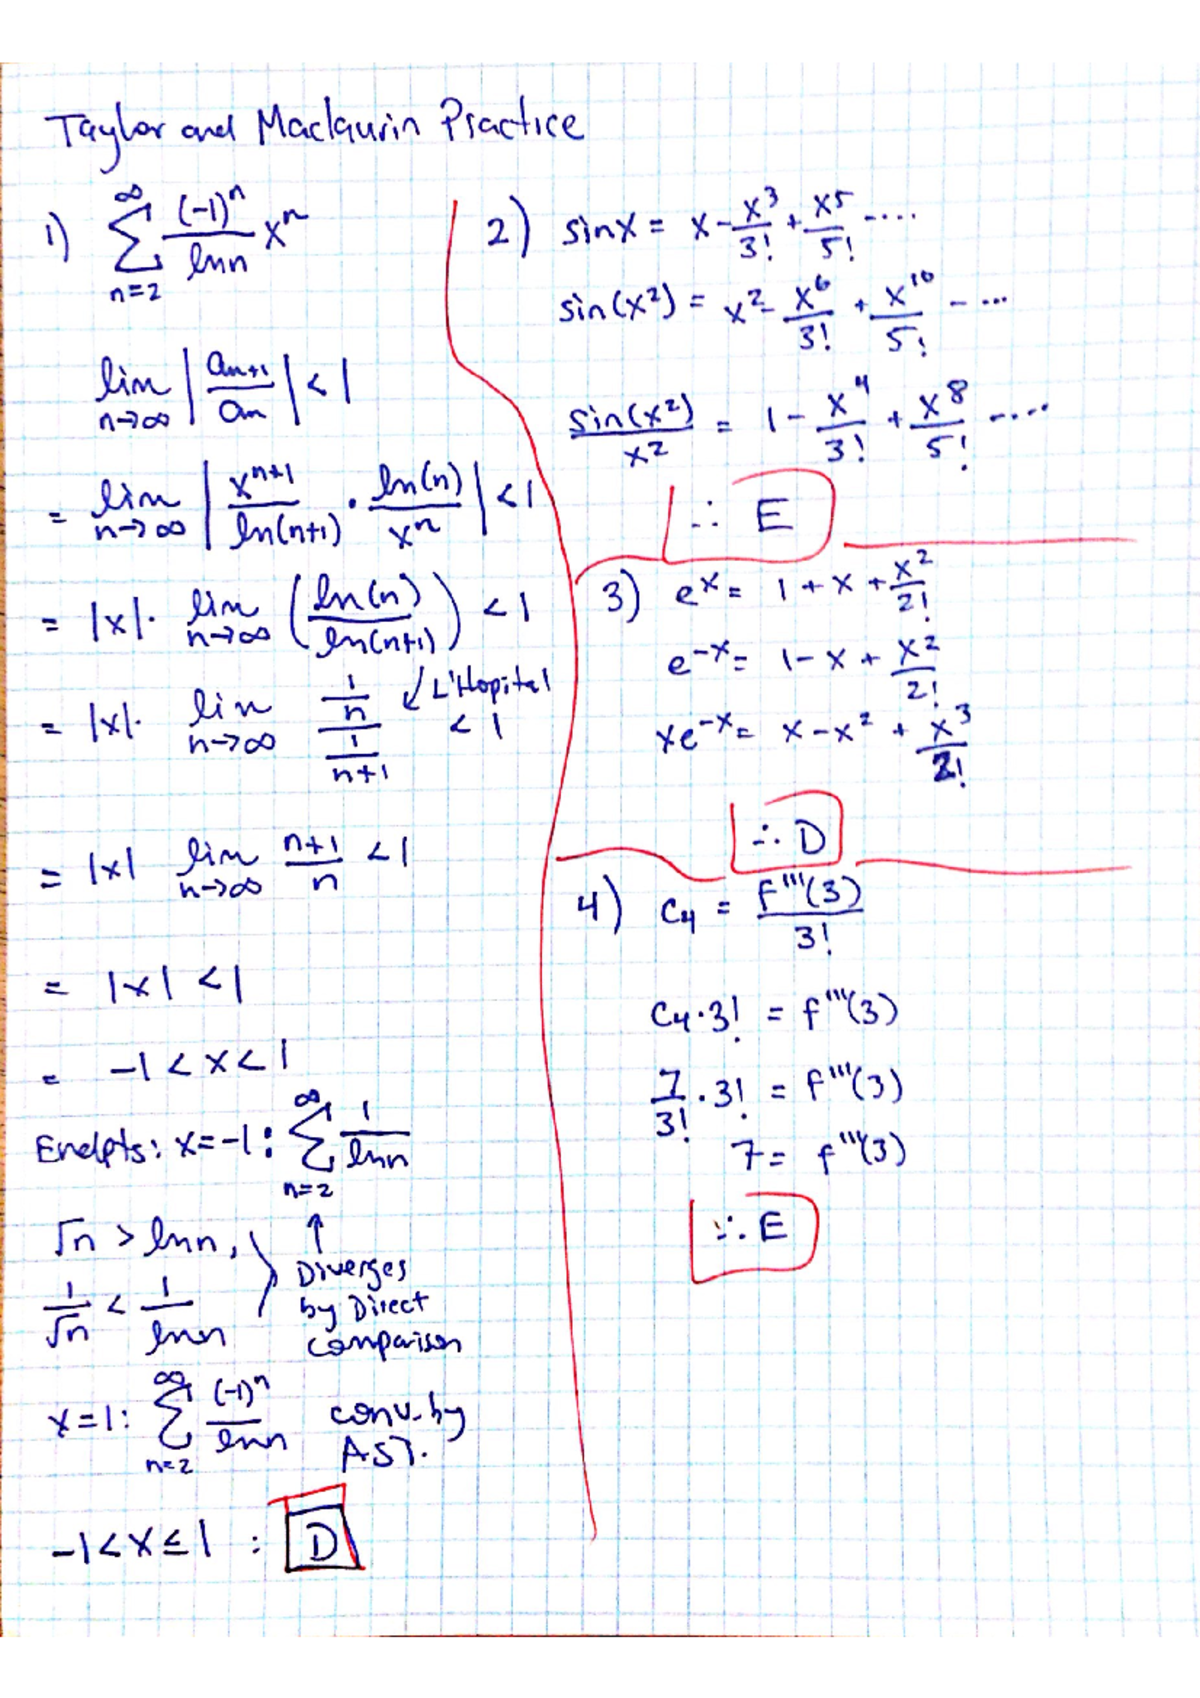 Taylor and Maclaurin Practice
1) ∞∑n=2 (-1)ⁿ/ln n xⁿ
lim n→∞ |aₙ₊₁/aₙ| < 1
= lim n→∞ |xⁿ⁺¹/ln(n+1) · ln(n)/xⁿ| < 1
= |x|· lim n→∞ (ln(n)/ln(n+1)) < 1
↙ L'Hopital
= |x|· lim n→∞ (1/n)/(1/(n+1)) < 1
= |x| lim n→∞ (n+1)/n < 1
= |x| < 1
= -1 < x < 1
Endpts: x=-1: ∞∑n=2 1/ln n
√n > ln n,
1/√n < 1/ln n
↑
Diverges
by Direct
comparison
x=1: ∞∑n=2 (-1)ⁿ/ln n conv. by
AST.
-1 < x ≤ 1 : D
2) sinx = x - x³/3! + x⁵/5! - ....
sin(x²) = x² - x⁶/3! + x¹⁰/5! - ...
sin(x²)/x² = 1 - x⁴/3! + x⁸/5! ....
∴ E
3) eˣ = 1 + x + x²/2!
e⁻ˣ = 1 - x + x²/2!
xe⁻ˣ = x - x² + x³/2!
∴ D
4) C₄ = f''''(3)/3!
C₄·3! = f''''(3)
7/3!·3! = f''''(3)
7 = f''''(3)
∴ E